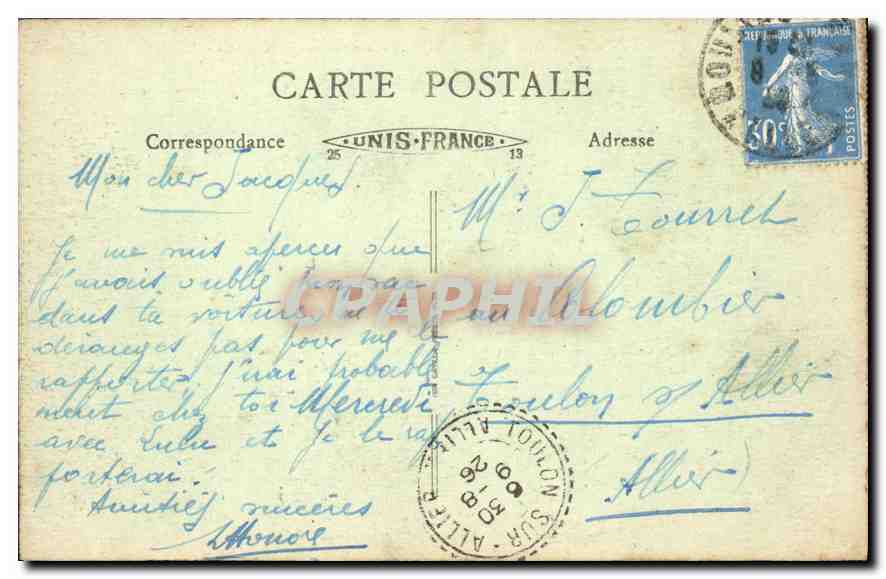 CARTE POSTALE
Correspondance
UNIS-FRANCE
25 13
Adresse
REPUBLIQUE FRANÇAISE
30c
POSTES
Mon cher Jacques
Je me suis aperçu que
j'avais oublié mon sac
dans ta voiture, ne te
déranges pas pour me le
rapporter, j'irai probable
ment chez toi Mercredi
avec Lulu et je le rap
porterai.
Amitiés sincères
Mr J Tourret
au Colombier
Toulon s/ Allier
Allier
TOULON SUR ALLIER
ALLIER
30 - 8
26
CPAPHIL